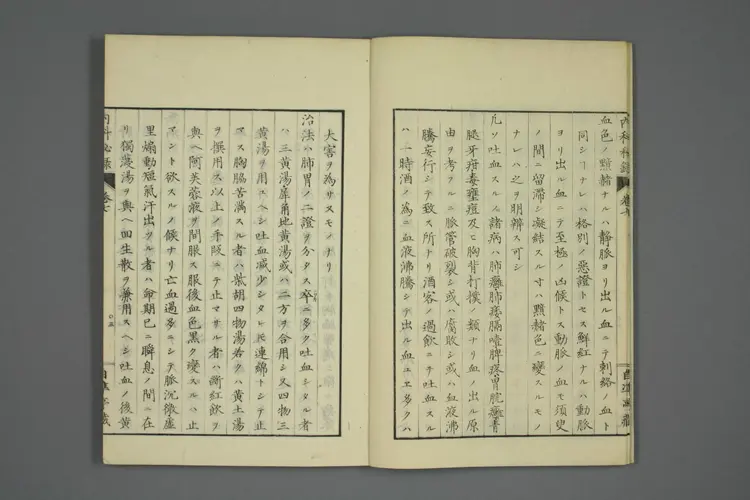 血色ノ黯赭ナルハ静脈ヨリ出ル血ニテ刺絡ノ血ト
同シコナレハ格別ノ惡證トセス鮮紅ナルハ動脈
ヨリ出ル血ニテ至極ノ凶候トス動脈ノ血モ須臾
ノ間ニ留滞シ凝結スル寸ハ黯赭色ニ變スルモノ
ナレハ之ヲ明辨ス可シ
凢ソ吐血スルノ諸病ハ肺癰肺痿膈噎脾疼胃脘癰青
腿牙疳毒壅痘及ヒ胸背打撲ノ類ナリ血ノ出ル原
由ヲ考ヲルニ脈管破裂シ或ハ腐敗シ或ハ血液沸
騰妄行シテ致ス所ナリ酒客ノ過飲ニテ吐血スル
ハ一時酒ノ為ニ血液沸騰シテ出ル血ユヱ多クハ
内科秘録
卷七
大害ヲ為サヌモノナリ
治法ハ肺胃ノ二證ヲ分タス卒ニ多ク吐血シタル者
ハ三黄湯犀角地黄湯或ハ二方ヲ合用シ又四物三
黄湯ヲ用ユヘシ吐血減少シタレモ連綿トシテ止
マス胸脇苦満スル者ハ骶胡四物湯若クハ黄土湯
ヲ撰用ス以上ノ手段ニテ止マサル者ハ断紅飲ヲ
與ヘ阿芙蓉液ヲ間服ス服後血色黒ク變スルハ止
マント欲スルノ候ナリ亡血過多ニシテ脈沉微虚
里煽動短氣汗出ル者ハ命期已ニ瞬息ノ間ニ在
リ獨蓡湯ヲ與ヘ回生散ヲ兼用スヘシ吐血ノ後黄
内科秘録
卷七